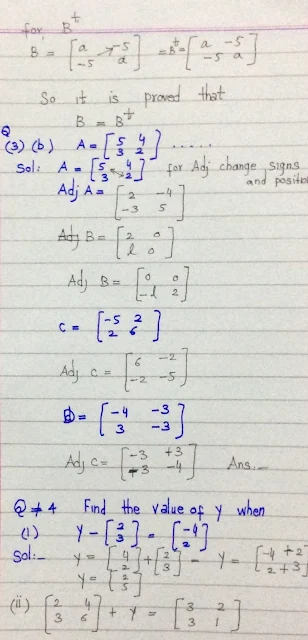 for B^t
B = [a -5; -5 a] = B^t = [a -5; -5 a]
So it is proved that
B = B^t
Q
(3) (b) A = [5 4; 3 2] .....
Sol: A = [5 4; 3 2] for Adj change signs and position
Adj A = [2 -4; -3 5]
Adj B = [2 0; l 0]
Adj B = [0 0; -l 2]
C = [-5 2; 2 6]
Adj C = [6 -2; -2 -5]
D = [-4 -3; 3 -3]
Adj C = [-3 +3; -3 -4] Ans.
Q ≠ 4 Find the value of Y when
(i) Y - [2; 3] = [-4; 2]
Sol:- Y = [-4; 2] + [2; 3] - Y = [-4 +2; 2 +3]
Y = [2; 5]
(ii) [2 4; 3 6] + Y = [3 2; 3 1]